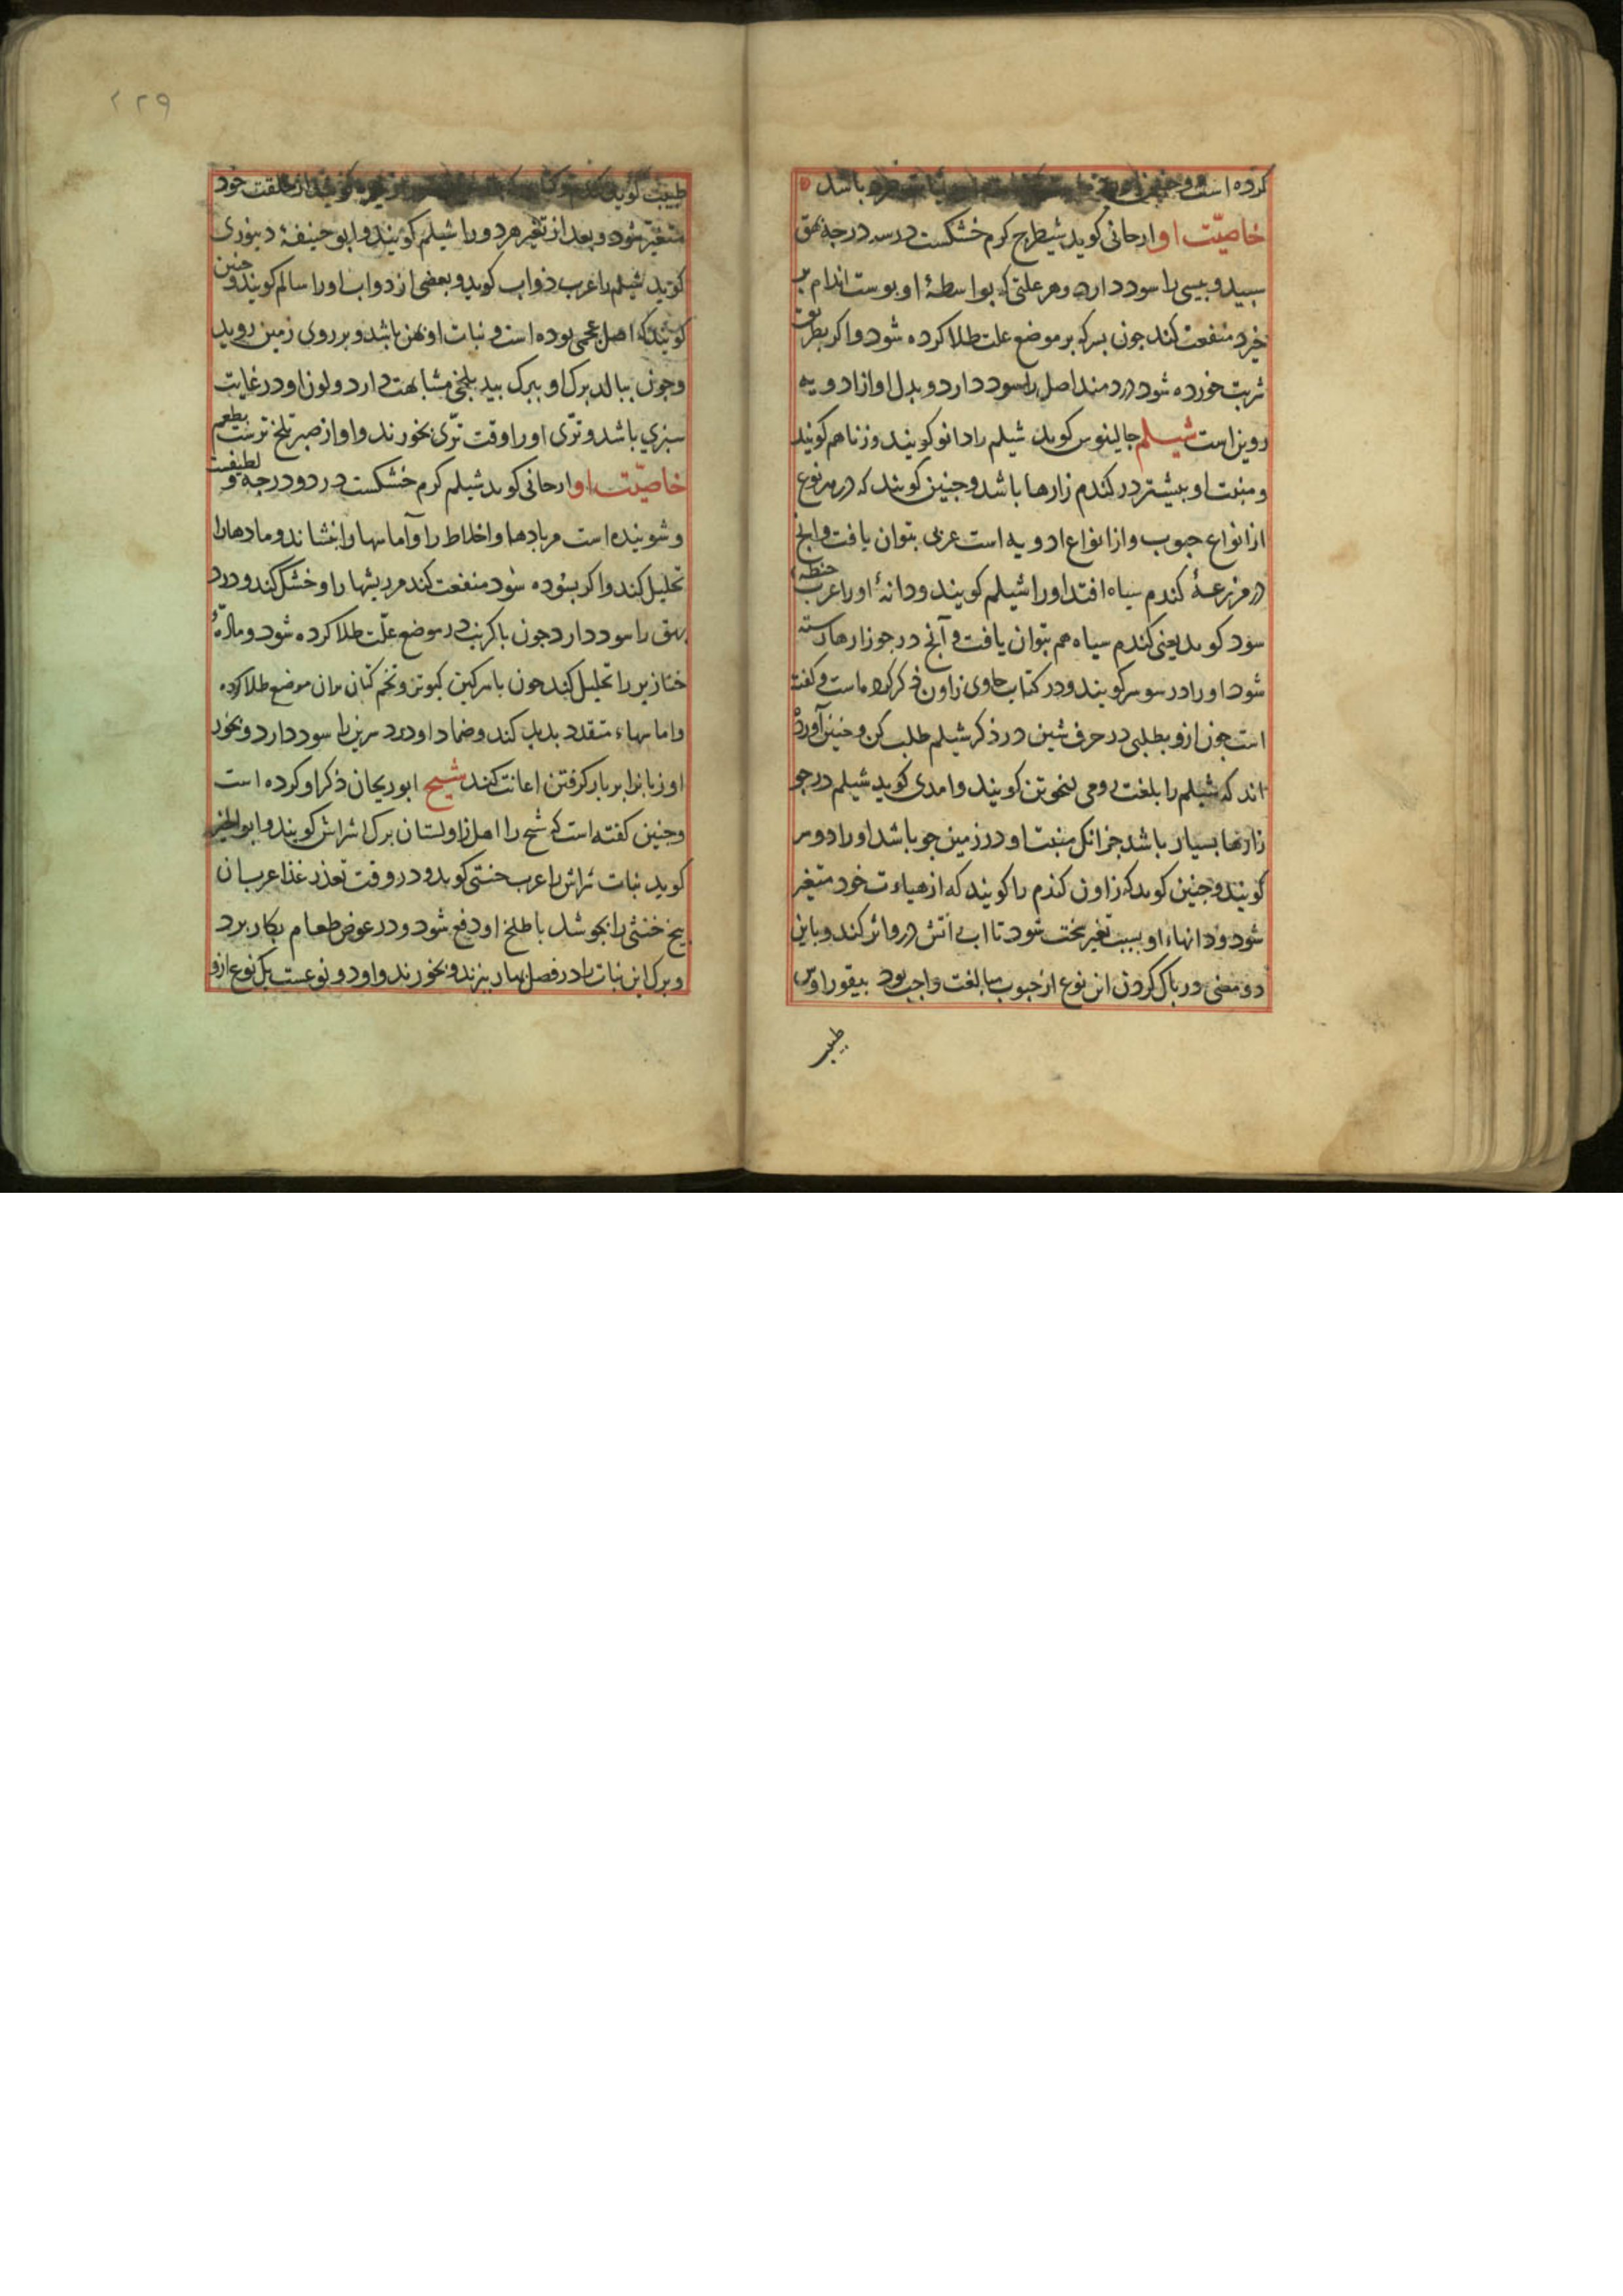 کرده است و باشد
خاصیّت او ارجانی کوید شیطرج کرم خشکست در سه درجه بهق
سبید و بیسی را سود دارد و هر علتی که بواسطهٔ او بوست اندام بر
خیزد منفعت کند جون بسرکه بر موضع علت طلا کرده شود و اکر بطریق
شربت خورده شود درد مفاصل را سود دارد و بدل او از ادویه
روین است شیلم جالینوس کوید شیلم را دانو کویند و زنا هم کویند
و منبت او بیشتر در کندم زارها باشد و جنین کویند که در هر نوع
از انواع حبوب و از انواع ادویه است عربی بتوان یافت و انج
در مزرعهٔ کندم سیاه افتد او را شیلم کویند و دانهٔ او را عرب حنطه
سود کوید یعنی کندم سیاه هم بتوان یافت و آنج در جوزارها رسته
شود او را در سوسر کویند و در کتاب حاوی زاون ذکر کرده است و کفته
است جون ازو بطلبی در حرف شین در ذکر شیلم طلب کن و جنین آورده
اند که شیلم را بلغت رومی کویند و امدی کوید شیلم در جو
زارها بسیار باشد جز انک منبت او در زمین جو باشد او را دوسر
کویند و جنین کوید که زاون کندم را کویند که از هیاءت خود متغیر
شود و دانهاء او بسبب تغیر بخت شود تا اب اتش در و اثر کند و باین
دو معنی در باک کردن این نوع از حبوب مبالغت واجب بود
طبیب
۲۲۹
طبیب کوید کندم از خلقت خود
متغیر شود و بعد از تغیر هر دو را شیلم کویند و ابو حنیفهٔ دینوری
کوید شیلم را عرب ذواب کوید و بعضی از دواب او را سالم کویند و جنین
کویند که اصل عجمی بوده است و نبات او بهن باشد و بر روی زمین روید
و جون ببالد برک او ببرک بید بلخی مشابهت دارد و لون او در غایت
سبزی باشد و ترّی او را وقت ترّی بخورند و او از صبر تلخ ترست بطعم
خاصیّت او ارجانی کوید شیلم کرم خشکست در دو درجه و لطیفست
و شوینده است مر بادها و اخلاط را و آماسها را بنشاند و مادها را
تحلیل کند و اکر بسوده شود منفعت کند مر ریشها را و خشک کند و درد
بهق را سود دارد جون با کربت در موضع علّت طلا کرده شود و مادّهٔ
خنازیر را تحلیل کند جون با سرکین کبوتر و تخم کتان بران موضع طلا کرده
و اماسهاء متقدد بدید کند و ضماد او درد سرین را سود دارد و بخور
او زنانرا بر بار کرفتن اعانت کند شیح ابو ریحان ذکر او کرده است
و جنین کفته است که شیح را اهل زاولستان برک اشراش کویند و ابو الخیر
کوید نبات شراش را عرب خنثی کوید و در وقت تعذر غذا عربان
بیخ خنثی را بجوشد با طلخ او دفع شود و در عوض طعام بکار برد
و برک این نبات را در فصل بهار ببزند و بخورند و او دو نوعست یک نوع ازو